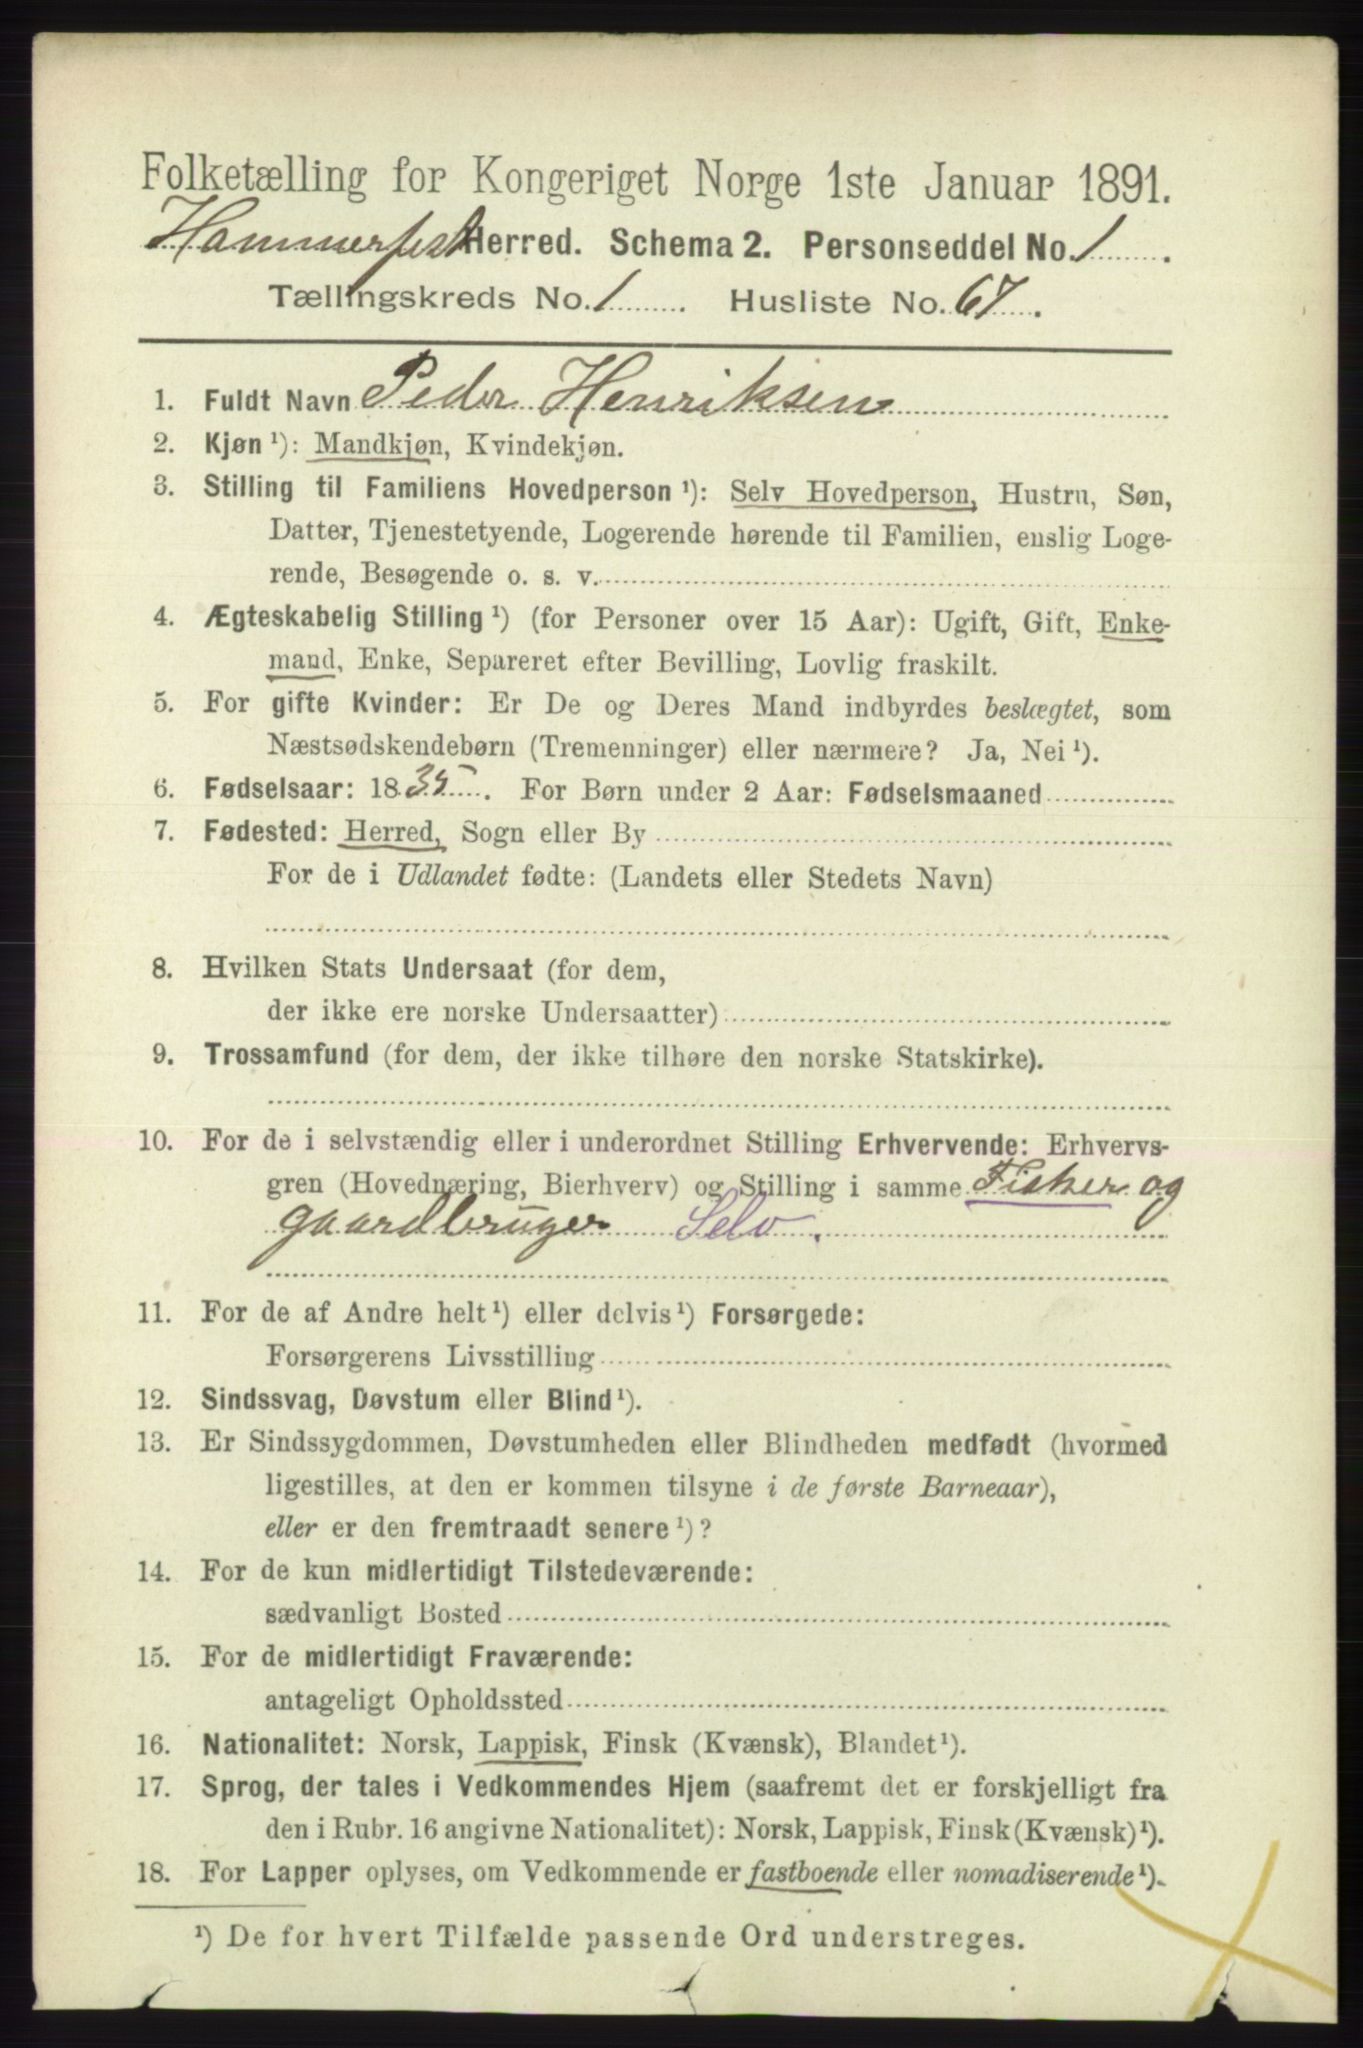 Folketælling for Kongeriget Norge 1ste Januar 1891.
Hammerfest Herred. Schema 2. Personseddel No. 1
Tællingskreds No. 1 Husliste No. 67.
1. Fuldt Navn Peder Henriksen
2. Kjøn ¹): Mandkjøn, Kvindekjøn.
3. Stilling til Familiens Hovedperson ¹): Selv Hovedperson, Hustru, Søn,
Datter, Tjenestetyende, Logerende hørende til Familien, enslig Loge-
rende, Besøgende o. s. v.
4. Ægteskabelig Stilling ¹) (for Personer over 15 Aar): Ugift, Gift, Enke-
mand, Enke, Separeret efter Bevilling, Lovlig fraskilt.
5. For gifte Kvinder: Er De og Deres Mand indbyrdes beslægtet, som
Næstsødskendebørn (Tremenninger) eller nærmere? Ja, Nei ¹).
6. Fødselsaar: 1835. For Børn under 2 Aar: Fødselsmaaned
7. Fødested: Herred, Sogn eller By
For de i Udlandet fødte: (Landets eller Stedets Navn)
8. Hvilken Stats Undersaat (for dem,
der ikke ere norske Undersaatter)
9. Trossamfund (for dem, der ikke tilhøre den norske Statskirke).
10. For de i selvstændig eller i underordnet Stilling Erhvervende: Erhvervs-
gren (Hovednæring, Bierhverv) og Stilling i samme Fisker og
gaardbruger Selv.
11. For de af Andre helt ¹) eller delvis ¹) Forsørgede:
Forsørgerens Livsstilling
12. Sindssvag, Døvstum eller Blind ¹).
13. Er Sindssygdommen, Døvstumheden eller Blindheden medfødt (hvormed
ligestilles, at den er kommen tilsyne i de første Barneaar),
eller er den fremtraadt senere ¹)?
14. For de kun midlertidigt Tilstedeværende:
sædvanligt Bosted
15. For de midlertidigt Fraværende:
antageligt Opholdssted
16. Nationalitet: Norsk, Lappisk, Finsk (Kvænsk), Blandet ¹).
17. Sprog, der tales i Vedkommendes Hjem (saafremt det er forskjelligt fra
den i Rubr. 16 angivne Nationalitet): Norsk, Lappisk, Finsk (Kvænsk) ¹).
18. For Lapper oplyses, om Vedkommende er fastboende eller nomadiserende ¹).
¹) De for hvert Tilfælde passende Ord understreges.